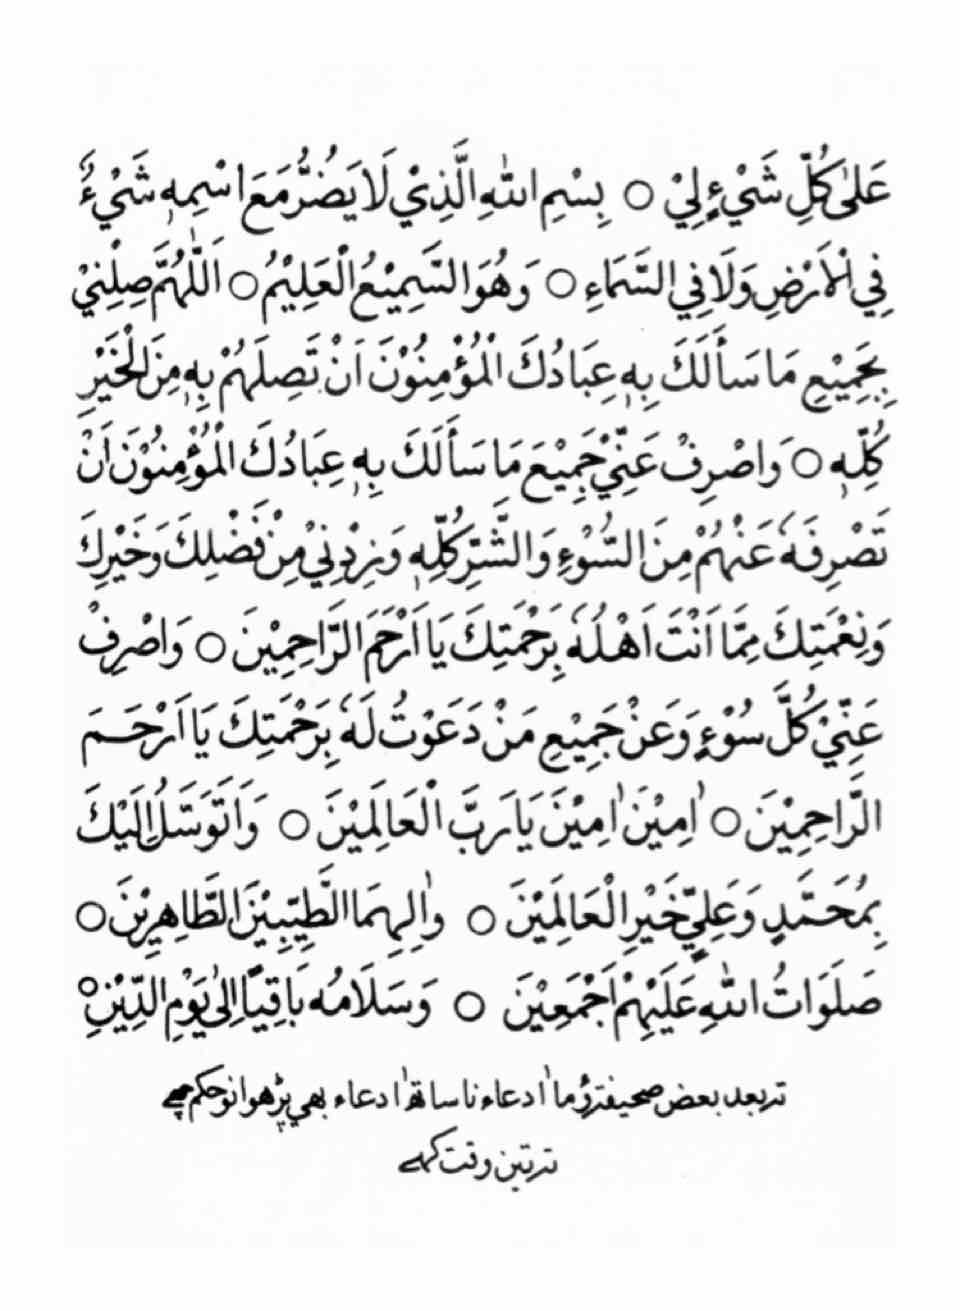 عَلٰى كُلِّ شَيْءٍ لِيْ ○ بِسْمِ اللهِ الَّذِيْ لَا يَضُرُّ مَعَ اسْمِهٖ شَيْءٌ
فِي الْاَرْضِ وَلَا فِي السَّمَاءِ ○ وَهُوَ السَّمِيْعُ الْعَلِيْمُ ○ اَللّٰهُمَّ صِلْنِيْ
بِجَمِيْعِ مَا سَأَلَكَ بِهٖ عِبَادُكَ الْمُؤْمِنُوْنَ اَنْ تَصِلَهُمْ بِهٖ مِنَ الْخَيْرِ
كُلِّهٖ ○ وَاصْرِفْ عَنِّيْ جَمِيْعَ مَا سَأَلَكَ بِهٖ عِبَادُكَ الْمُؤْمِنُوْنَ اَنْ
تَصْرِفَهٗ عَنْهُمْ مِنَ السُّوْءِ وَالشَّرِّ كُلِّهٖ وَزِدْنِيْ مِنْ فَضْلِكَ وَخَيْرِكَ
وَنِعْمَتِكَ مِمَّا اَنْتَ اَهْلُهٗ بِرَحْمَتِكَ يَا اَرْحَمَ الرَّاحِمِيْنَ ○ وَاصْرِفْ
عَنِّيْ كُلَّ سُوْءٍ وَعَنْ جَمِيْعِ مَنْ دَعَوْتُ لَهٗ بِرَحْمَتِكَ يَا اَرْحَمَ
الرَّاحِمِيْنَ ○ اٰمِيْنَ اٰمِيْنَ يَا رَبَّ الْعَالَمِيْنَ ○ وَاَتَوَسَّلُ اِلَيْكَ
بِمُحَمَّدٍ وَعَلِيٍّ خَيْرِ الْعَالَمِيْنَ ○ وَاٰلِهِمَا الطَّيِّبِيْنَ الطَّاهِرِيْنَ ○
صَلَوَاتُ اللهِ عَلَيْهِمْ اَجْمَعِيْنَ ○ وَسَلَامُهٗ بَاقِيًا اِلٰى يَوْمِ الدِّيْنِ ○
تربعد بعض صحيفةؤ ما اٰ دعاء نا ساتھ اٰ دعاء بھي پڑھوانو حكم چھے
تر تين وقت كہے